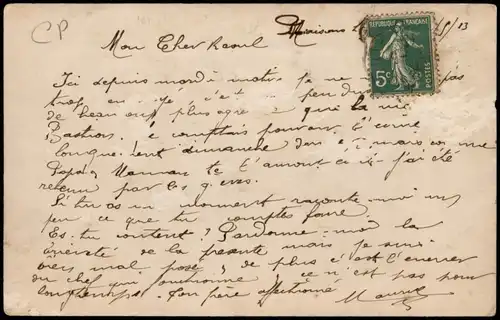 CP
Maisons /5/13
REPUBLIQUE FRANÇAISE
5c
POSTES
Mon Cher Raoul
Ici depuis mardi matin je ne pas
trop en c'est peu du
de beaucoup plus agré que la rue
Bastion. e comptais pouvoir t'écrire
longue ent dimanche dans mais comme
Papa Maman te l'auront dit j'ai été
retenu par les
Si tu as un moment raconte-moi un
peu ce que tu comptes faire.
Es-tu content? Pardonne-moi la
brièveté de la présente mais je suis
très mal posé, de plus c'est l'encrier
du chef qui ce n'est pas pour
longtemps. Ton frère affectionné
Maurice